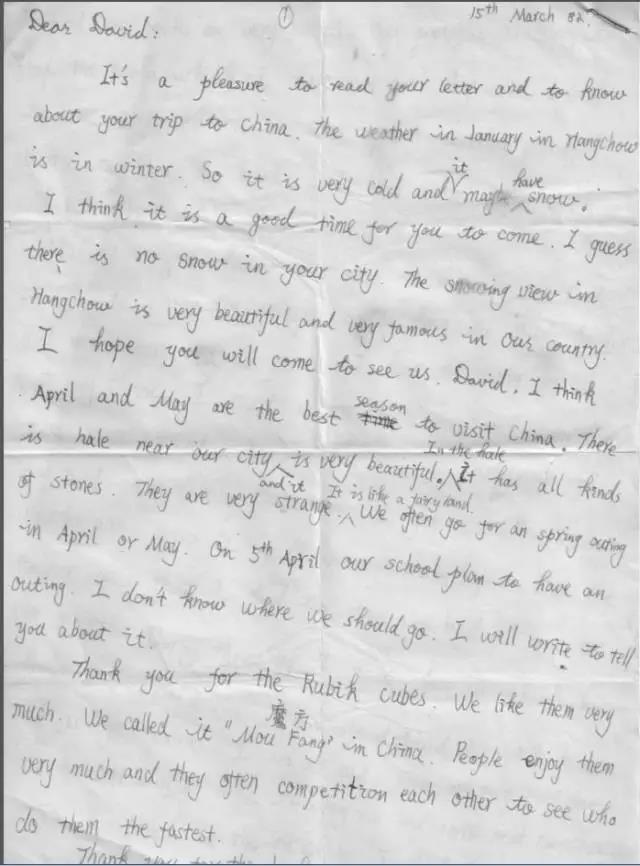 ①
15th March 82.
Dear David:
It's a pleasure to read your letter and to know
about your trip to China. The weather in January in Hangchow
is in winter. So it is very cold and it maybe have snow.
I think it is a good time for you to come. I guess
there is no snow in your city. The snowing view in
Hangchow is very beautiful and very famous in our country.
I hope you will come to see us. David, I think
April and May are the best season to visit China. There
is hale near our city and it is very beautiful. In the hale It has all kinds
of stones. They are very strange. It is like a fairy land. We often go for an spring outing
in April or May. On 5th April our school plan to have an
outing. I don't know where we should go. I will write to tell
you about it.
Thank you for the Rubik cubes. We like them very
much. We called it "Mou Fang" 魔方 in China. People enjoy them
very much and they often competition each other to see who
do them the fastest.
Thank you for the